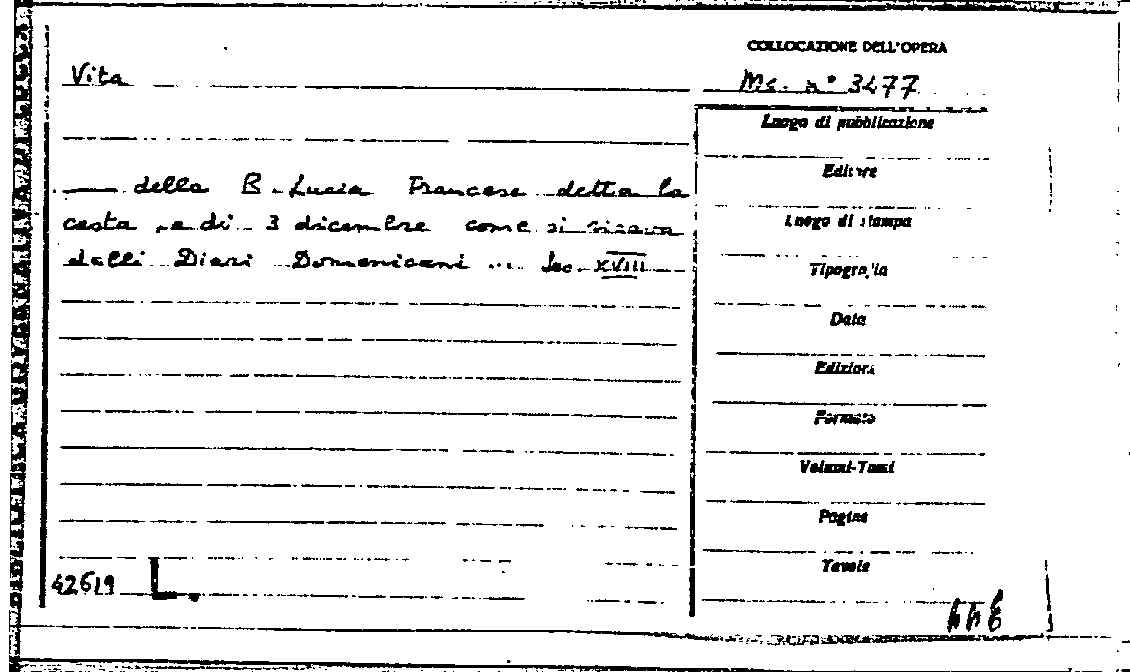 COLLOCAZIONE DELL'OPERA
Vita
Ms. n° 3477
Luogo di pubblicazione
Editore
della B. Lucia Francese detta la
casta e di 3 dicembre come si ricava
Luogo di stampa
dalli Diari Domenicani ... Sec. XVIII
Tipografia
Data
Edizione
Formato
Volumi-Tomi
Pagine
Tavole
42619 L.